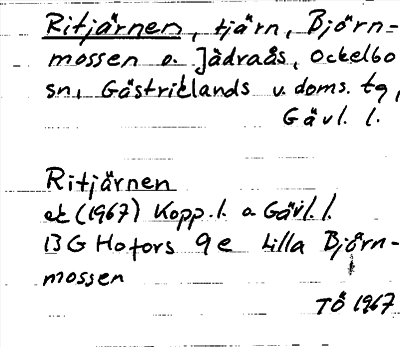 Ritjärnen, tjärn, Björn-
mossen o. Jädraås, Ockelbo
sn, Gästriklands v. doms. tg,
Gävl. l.
Ritjärnen
ek (1967) Kopp. l. o Gävl. l.
13 G Hofors 9 e Lilla Björn-
mossen
TÖ 1967